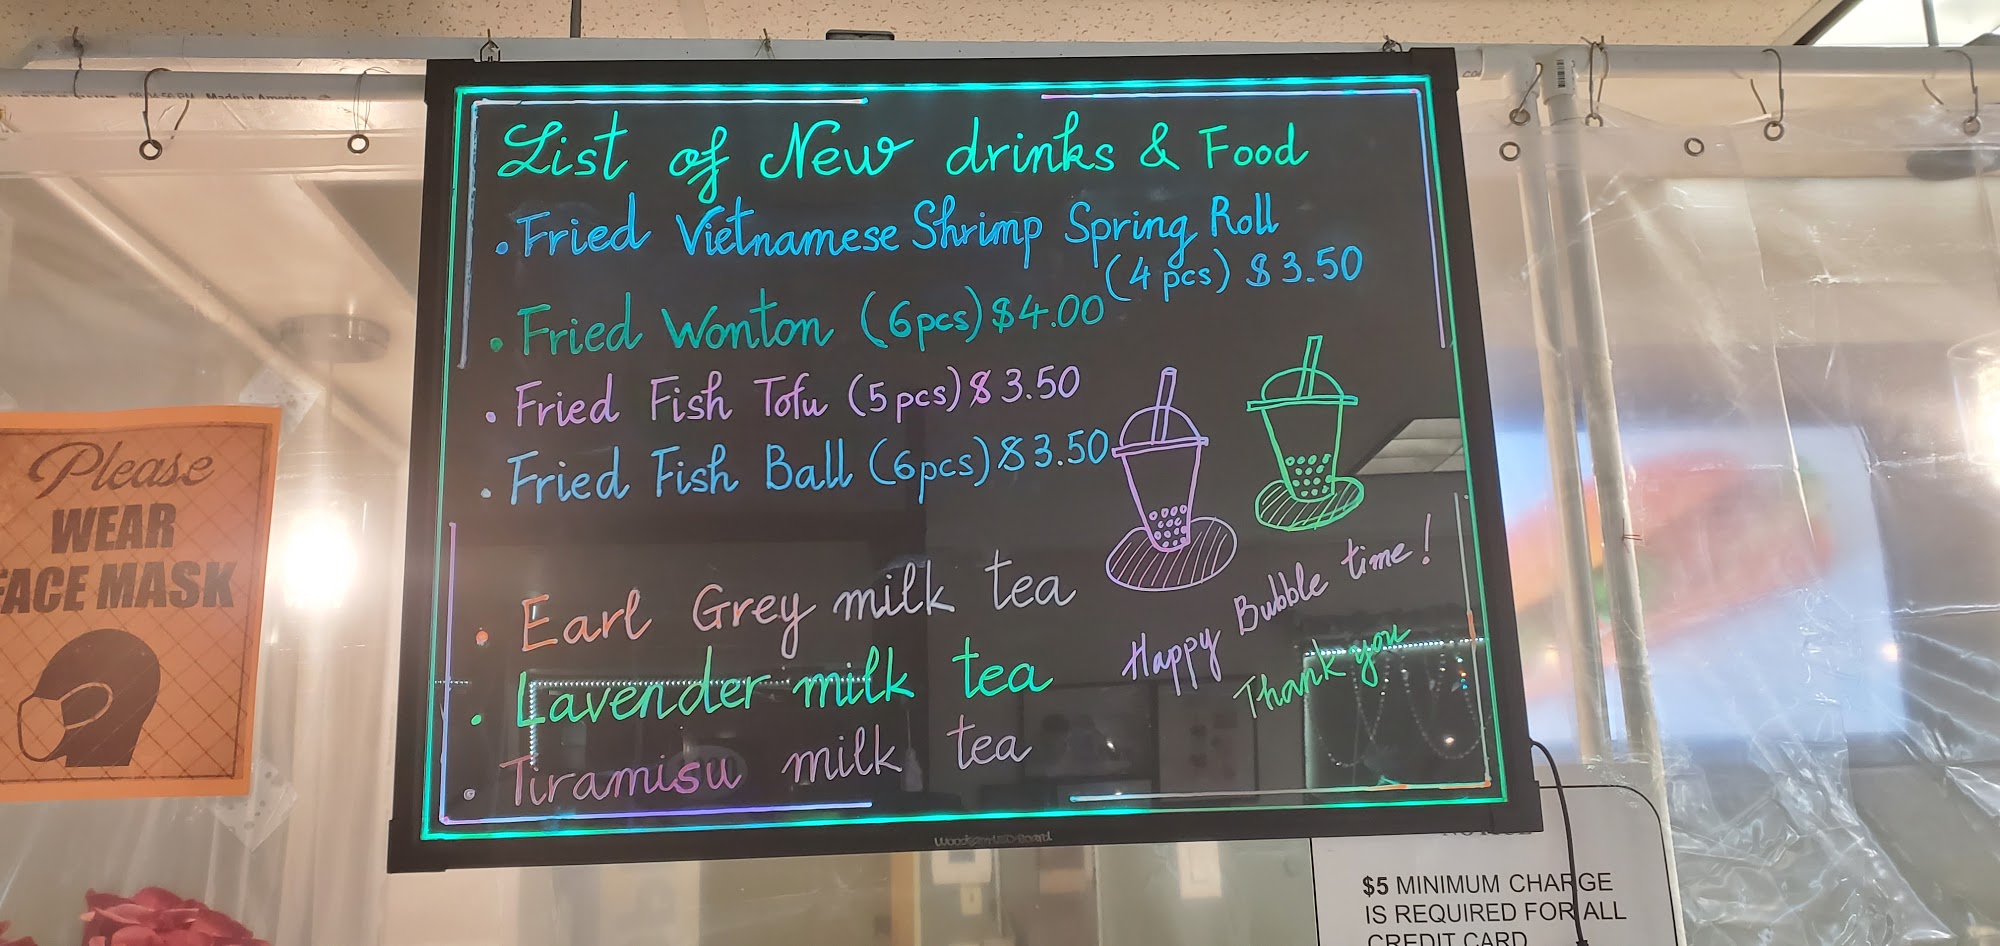 List of New drinks & Food
• Fried Vietnamese Shrimp Spring Roll
(4 pcs) $3.50
• Fried Wonton (6pcs) $4.00
• Fried Fish Tofu (5pcs) $3.50
• Fried Fish Ball (6pcs) $3.50
• Earl Grey milk tea
• Lavender milk tea
• Tiramisu milk tea
Happy Bubble time!
Thank you
Please
WEAR
FACE MASK
$5 MINIMUM CHARGE
IS REQUIRED FOR ALL
CREDIT CARD
Made in America